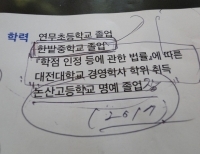 학력 연무초등학교 졸업
한밭중학교 졸업
「학점 인정 등에 관한 법률」에 따른
대전대학교 경영학사 학위 취득
논산고등학교 명예 졸업?